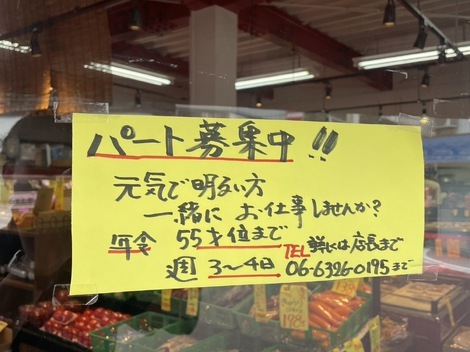 パート募集中!!
元気で明るい方
一緒に お仕事しませんか?
年令 55才位まで
TEL 詳しくは店長まで
週 3〜4日 06-6326-0195まで
198